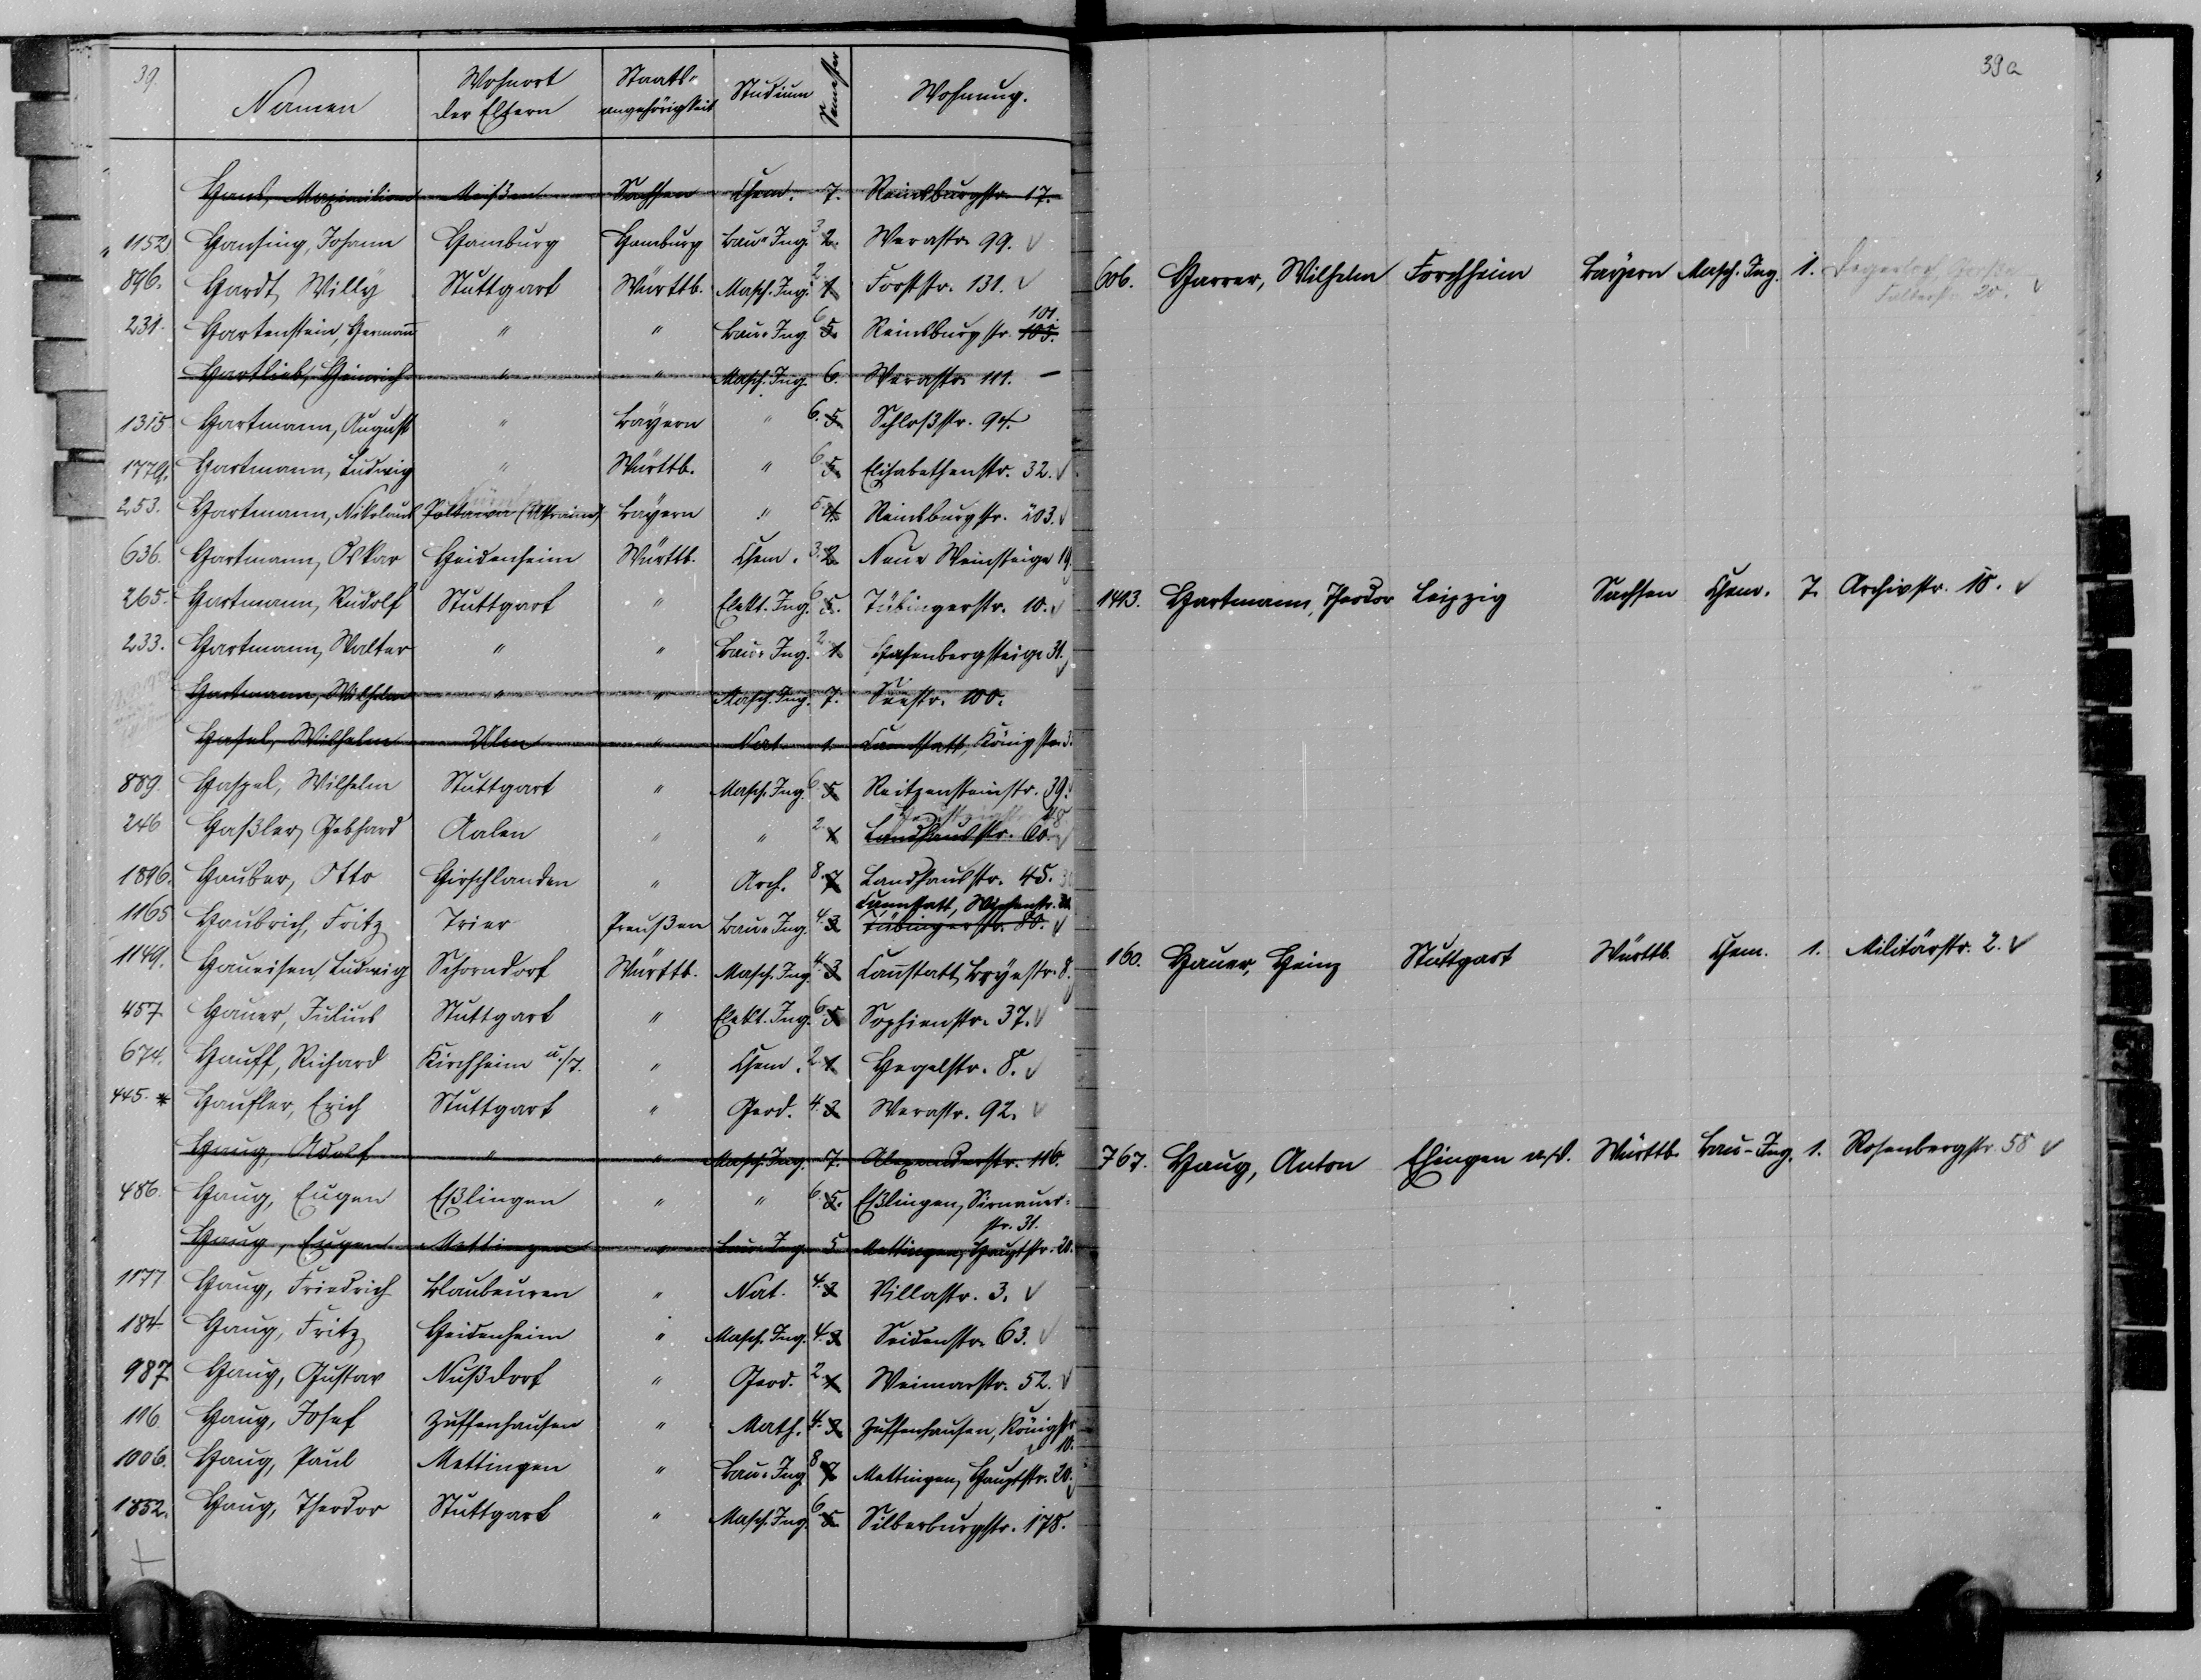 39.
Namen Wohnort der Eltern Staats-angehörigkeit Studium Semester Wohnung.
Hans, Maximilian Meißen Sachsen Chem. 7. Reinsburgstr. 17.
1152 Hansing, Johann Hamburg Hamburg Bau-Ing. 3 2. Werastr. 99.
896. Hardt, Willy Stuttgart Württb. Masch. Ing. 2. 1 Forststr. 131.
231. Hartenstein, Hermann " " Bau-Ing. 6 5. Reinsburgstr. 105. 101.
Hartlieb, Heinrich " " Masch. Ing. 6. Werastr. 111. –
1315 Hartmann, August " Bayern " 6. 5. Schloßstr. 94.
1779. Hartmann, Ludwig " Württb. " 6. 5. Elisabethenstr. 32.
253. Hartmann, Nikolaus Poltawa (Ukraine) Nürnberg Bayern " 5. 4. Reinsburgstr. 203.
636. Hartmann, Oskar Heidenheim Württb. Chem. 3. 2. Neue Weinsteige 19.
265. Hartmann, Rudolf Stuttgart " Elekt. Ing. 6. 5. Tübingerstr. 10.
233. Hartmann, Walter " " Bau-Ing. 2. 1. Hasenbergsteige 31.
Hartmann, Wilhelm " " Masch. Ing. 7. Seestr. 100.
Hasel, Wilhelm Ulm " Nat. 1. Cannstatt, Königstr. 3.
889. Haspel, Wilhelm Stuttgart " Masch. Ing. 6 5 Reitzensteinstr. 39.
246 Haßler, Gebhard Aalen " " 2. 1 Landhausstr. 60. 48
1896. Hauber, Otto Hirschlanden " Arch. 8. 7 Landhausstr. 45.
1165 Haubrich, Fritz Trier Preußen Bau-Ing. 4. 3 Tübingerstr. 80. Cannstatt, Wiesenstr.
1149. Haueisen Ludwig Schorndorf Württb. Masch. Ing. 4. 3 Cannstatt, Boyestr. 8.
457 Hauer, Julius Stuttgart " Elekt. Ing. 6. 5 Sophienstr. 37.
674. Hauff, Richard Kirchheim u./T. " Chem. 2. 1 Hegelstr. 8.
445. * Haufler, Erich Stuttgart " Geod. 4. 3 Werastr. 92.
Haug, Adolf " " Masch. Ing. 7. Alexanderstr. 116.
486. Haug, Eugen Eßlingen " " 6. 5. Eßlingen, Sirnauer-
str. 31.
Haug, Eugen Mettingen " Bau-Ing. 5 Mettingen, Hauptstr. 20.
1177 Haug, Friedrich Blaubeuren " Nat. 4. 3 Villastr. 3.
184. Haug, Fritz Heidenheim " Masch. Ing. 4. 3 Seidenstr. 63.
987. Haug, Gustav Nußdorf " Geod. 2. 1 Weimarstr. 52.
116 Haug, Josef Zuffenhausen " Math. 4. 3 Zuffenhausen, Königstr.
10.
1006. Haug, Paul Mettingen " Bau-Ing. 8 7 Mettingen, Hauptstr. 20.
1852. Haug, Theodor Stuttgart " Masch. Ing. 6 5. Silberburgstr. 178.
39a
606. Harrer, Wilhelm Forchheim Bayern Masch. Ing. 1. Degerloch,
Falterstr. 20.
1413. Hartmann, Theodor Leipzig Sachsen Chem. 7. Archivstr. 18.
160. Hauer, Heinz Stuttgart Württb. Chem. 1. Militärstr. 2.
767. Haug, Anton Ehingen a/D. Württb. Bau-Ing. 1. Rosenbergstr. 58